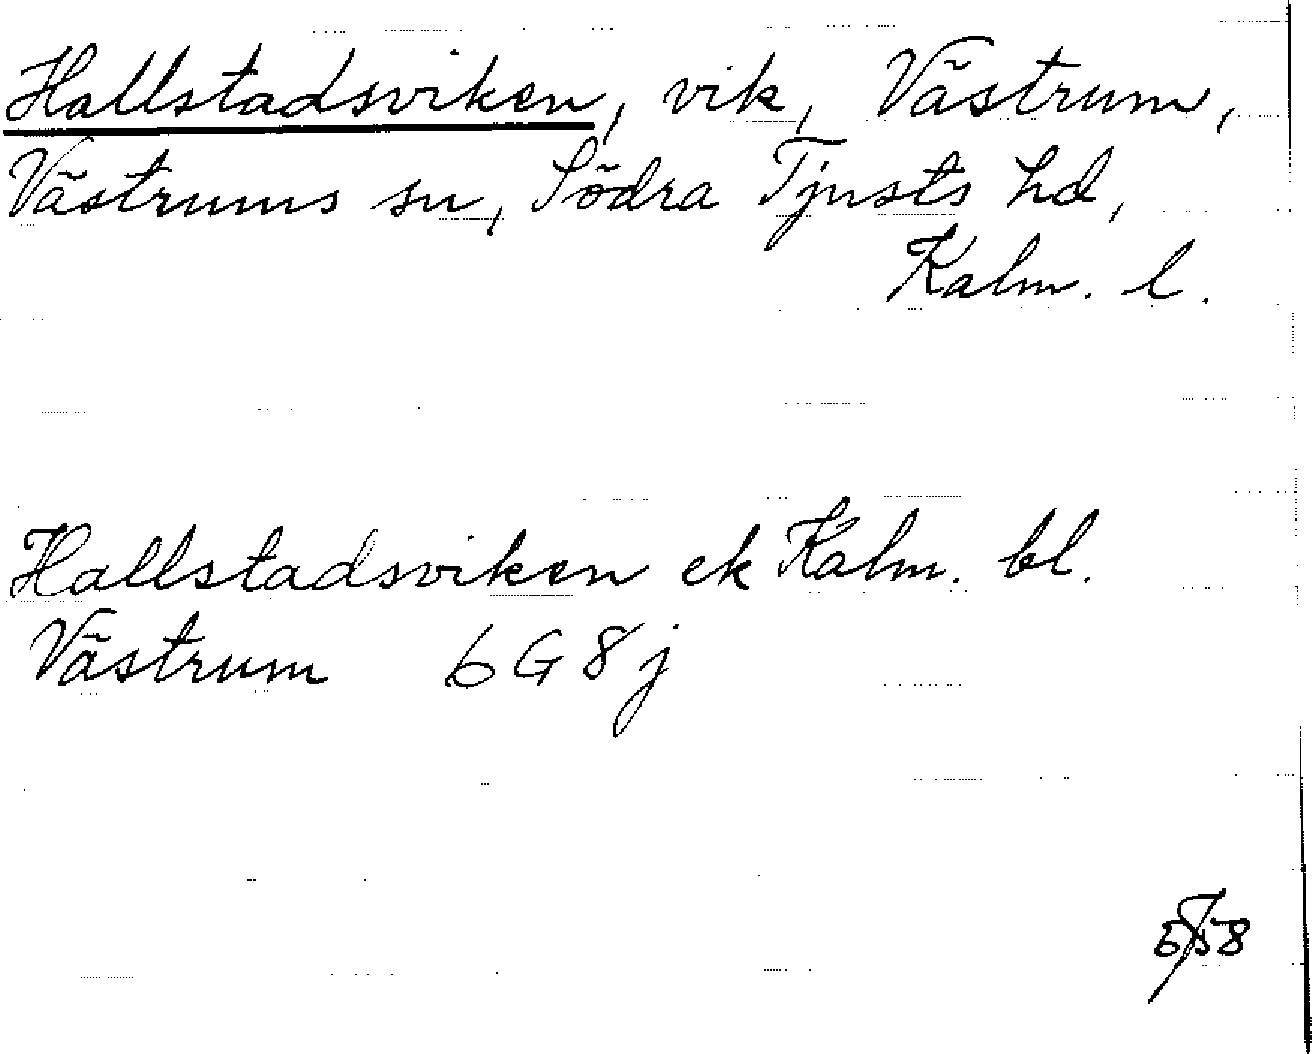 Hallstadsviken, vik, Västrum,
Västrums sn, Södra Tjusts hd,
Kalm. l.
Hallstadsviken ek Kalm. bl.
Västrum 6G8j